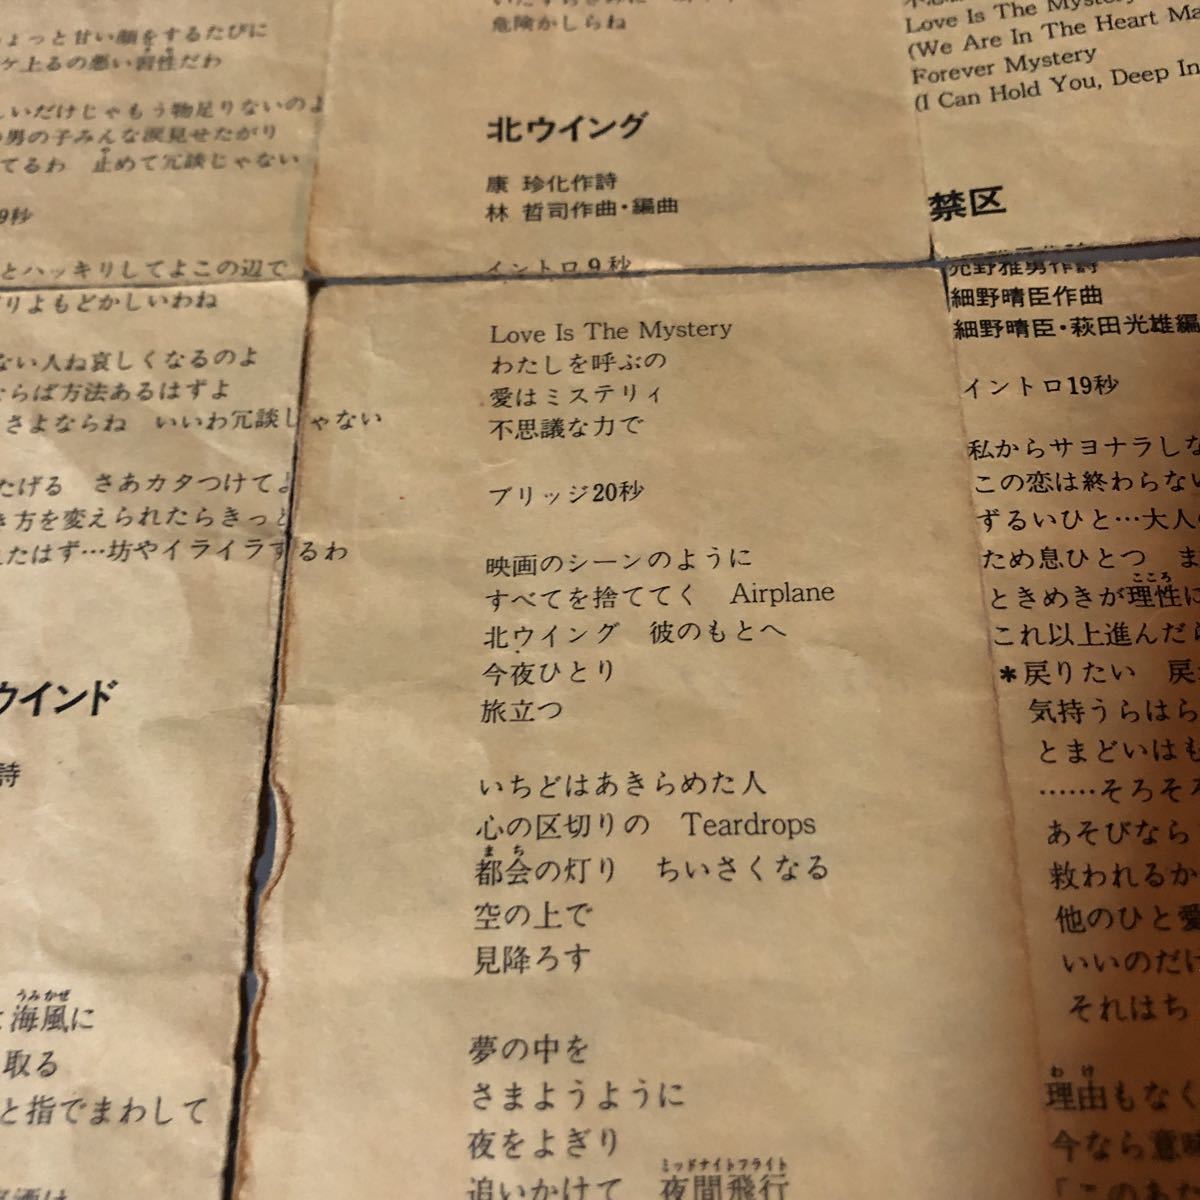 ょっと甘い顔をするたびに
ケ上るの悪い習性だわ
しいだけじゃもう物足りないのよ
男の子みんな涙見せたがり
てるわ　止めて冗談じゃない
9秒
とハッキリしてよこの辺で
りよもどかしいわね
ない人ね哀しくなるのよ
ならば方法あるはずよ
さよならね　いいわ冗談じゃない
たげる　さあカタつけてよ
き方を変えられたらきっと
たはず…坊やイライラするわ
ウインド
詩
海風に
うみかぜ
取る
と指でまわして
危険かしらね
北ウイング
康　珍化作詩
林　哲司作曲・編曲
イントロ9秒
Love Is The Mystery
わたしを呼ぶの
愛はミステリィ
不思議な力で
ブリッジ20秒
映画のシーンのように
すべてを捨ててく　Airplane
北ウイング　彼のもとへ
今夜ひとり
旅立つ
いちどはあきらめた人
心の区切りの　Teardrops
まち
都会の灯り　ちいさくなる
空の上で
見降ろす
夢の中を
さまようように
夜をよぎり
ミッドナイトフライト
追いかけて　夜間飛行
Love Is The Mystery
(We Are In The Heart Ma
Forever Mystery
(I Can Hold You, Deep In
禁区
売野雅勇作詩
細野晴臣作曲
細野晴臣・萩田光雄編
イントロ19秒
私からサヨナラしな
この恋は終わらない
ずるいひと…大人の
ため息ひとつ　ま
こころ
ときめきが理性に
これ以上進んだら
*戻りたい　戻
気持うらはら
とまどいはも
……そろそろ
あそびなら
救われるか
他のひと愛
いいのだけ
それはち
わけ
理由もなく
今なら意味
「このあた